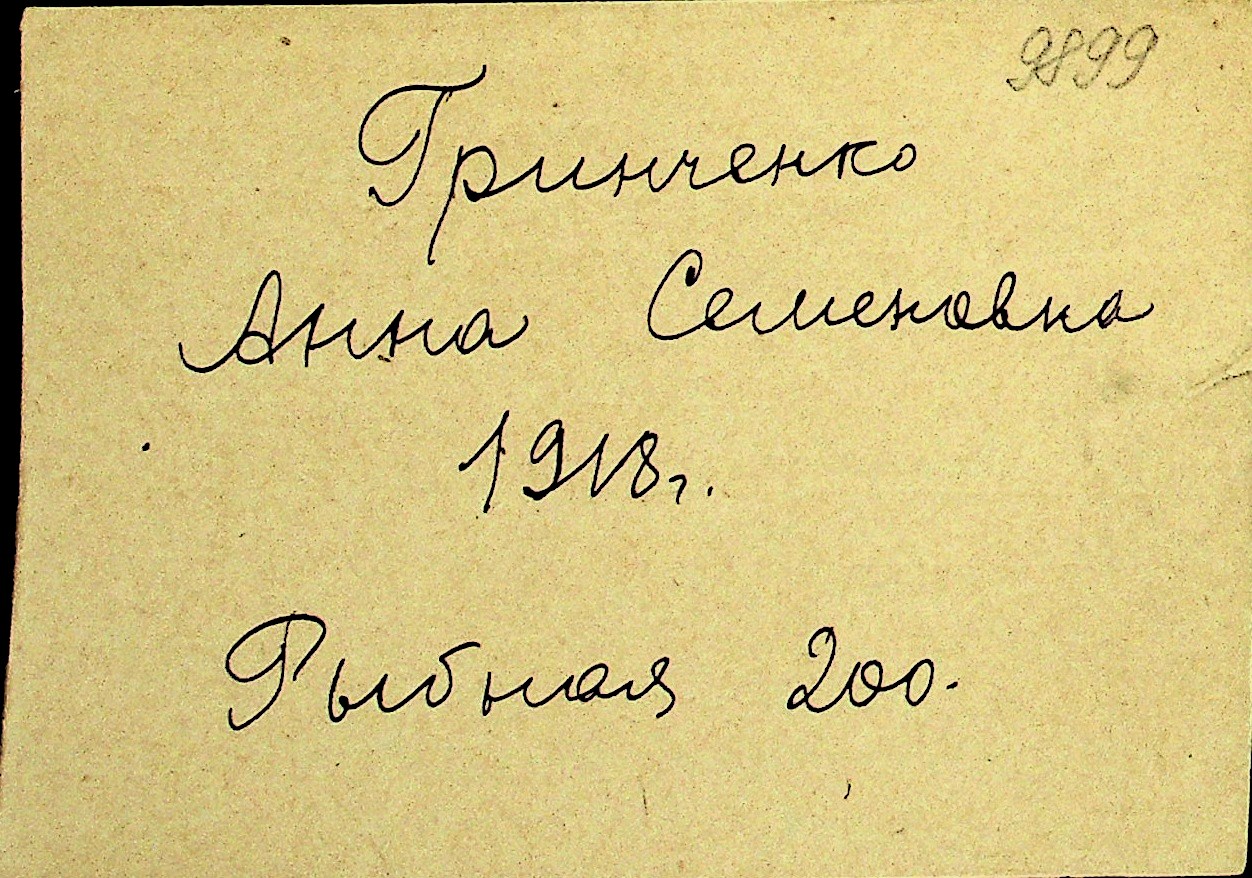 9899
Гринченко
Анна Семеновна
1918г.
Рыбная 200.